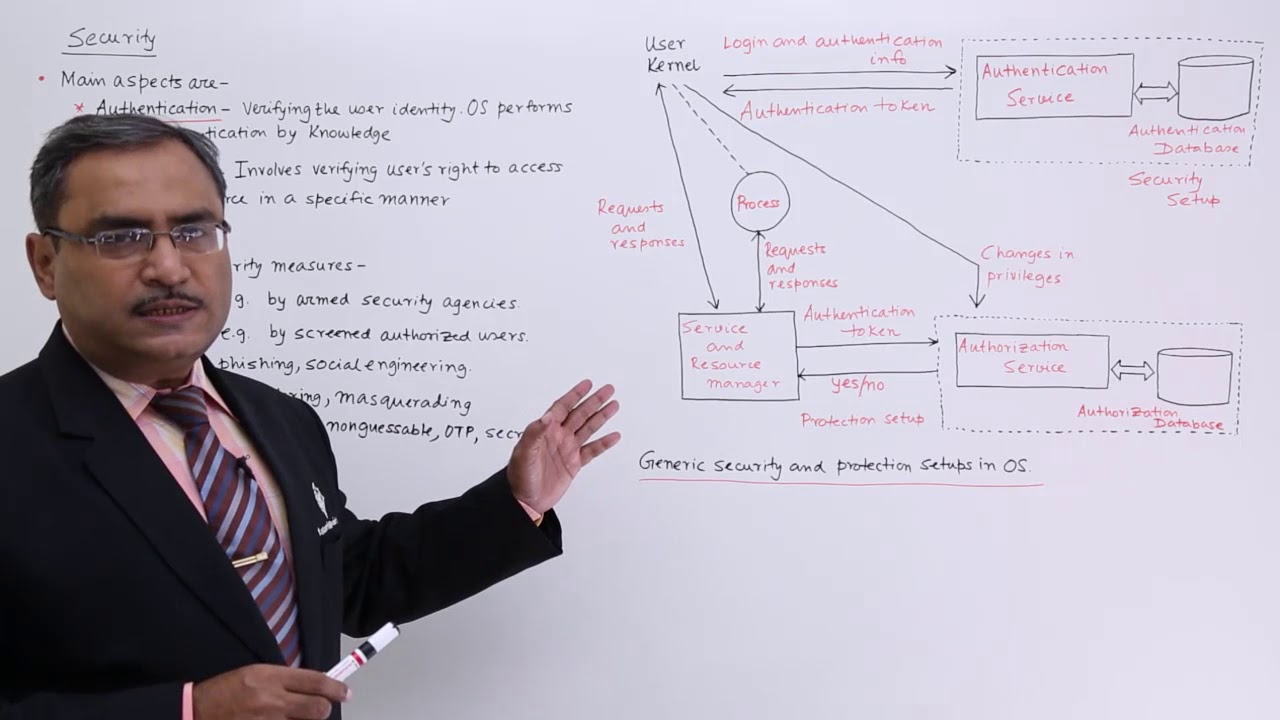 Security
• Main aspects are-
* Authentication - Verifying the user identity. OS performs
tication by Knowledge
Involves verifying user's right to access
rce in a specific manner
rity measures -
e.g. by armed security agencies.
e.g. by screened authorized users.
phishing, social engineering.
ring, masquerading
nonguessable, OTP, secr
User
Kernel
Login and authentication
info
Authentication token
Authentication
Service
Authentication
Database
Security
Setup
Process
Requests
and
responses
Requests
and
responses
Changes in
privileges
Service
and
Resource
manager
Authentication
token
yes/no
Protection setup
Authorization
Service
Authorization
Database
Generic security and protection setups in OS.